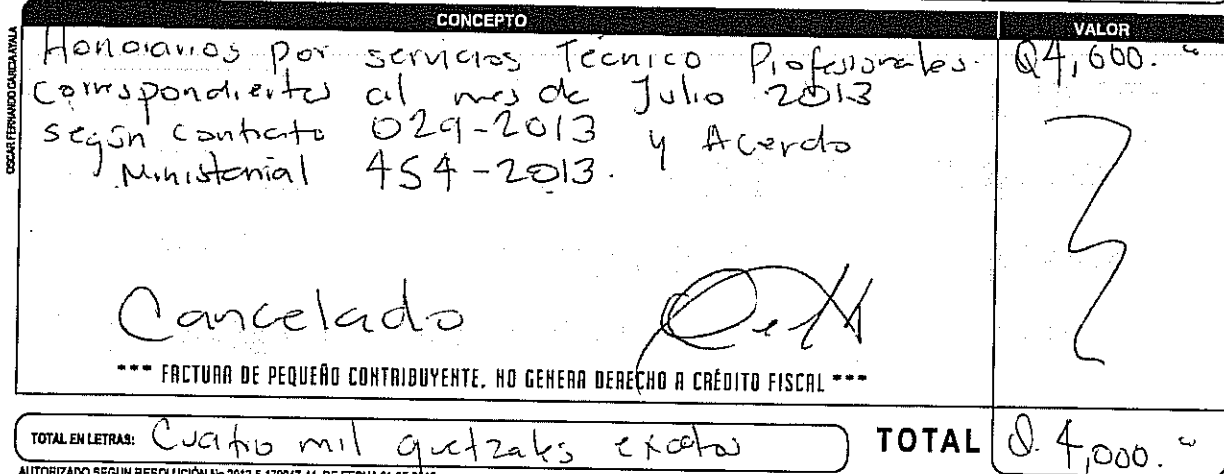 CONCEPTO
VALOR
OSCAR FERNANDO GARCIA AYALA
Honorarios por servicios Técnico Profesionales. Q4,000.
Correspondientes al mes de Julio 2013
según Contrato 029-2013 y Acerdo
Ministerial 454-2013.
Cancelado
*** FACTURA DE PEQUEÑO CONTRIBUYENTE, NO GENERA DERECHO A CRÉDITO FISCAL ***
TOTAL EN LETRAS: Cuatro mil quetzales exactos TOTAL Q. 4,000.
AUTORIZADO SEGUN RESOLUCIÓN No